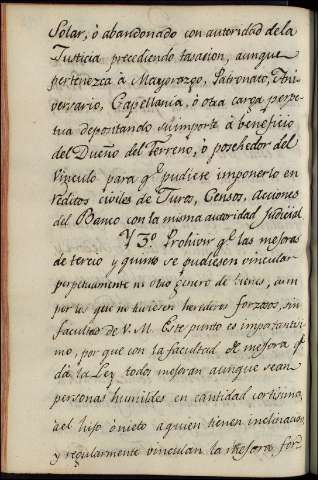 Solar, ó abandonado con autoridad dela
Justicia precediendo tasacion, aunque
pertenezca á Mayorazgo, Patronato, Ani
versario, Capellania, ó otra carga perpe
tua depositando su importe á beneficio
del Dueño del Terreno, ó poshehedor del
Vinculo para q.e pudiese imponerlo en
reditos civiles de Juros, Censos, Acciones
del Banco con la misma autoridad Judicial
Y 3.º Prohivir q.e las mejoras
de tercio y quinto se pudiesen vincular
perpetuamente ni otro genero de bienes, aun
por los que no tuviesen herederos forzosos, sin
facultad de V. M. Este punto es importantisi
mo, por que con la facultad de mejora q.e
dá la Ley todos mejoran aunque sean
personas humildes en cantidad cortisima,
ael hijo ó nieto a quien tienen inclinacion
y regularmente vinculan la mejora for